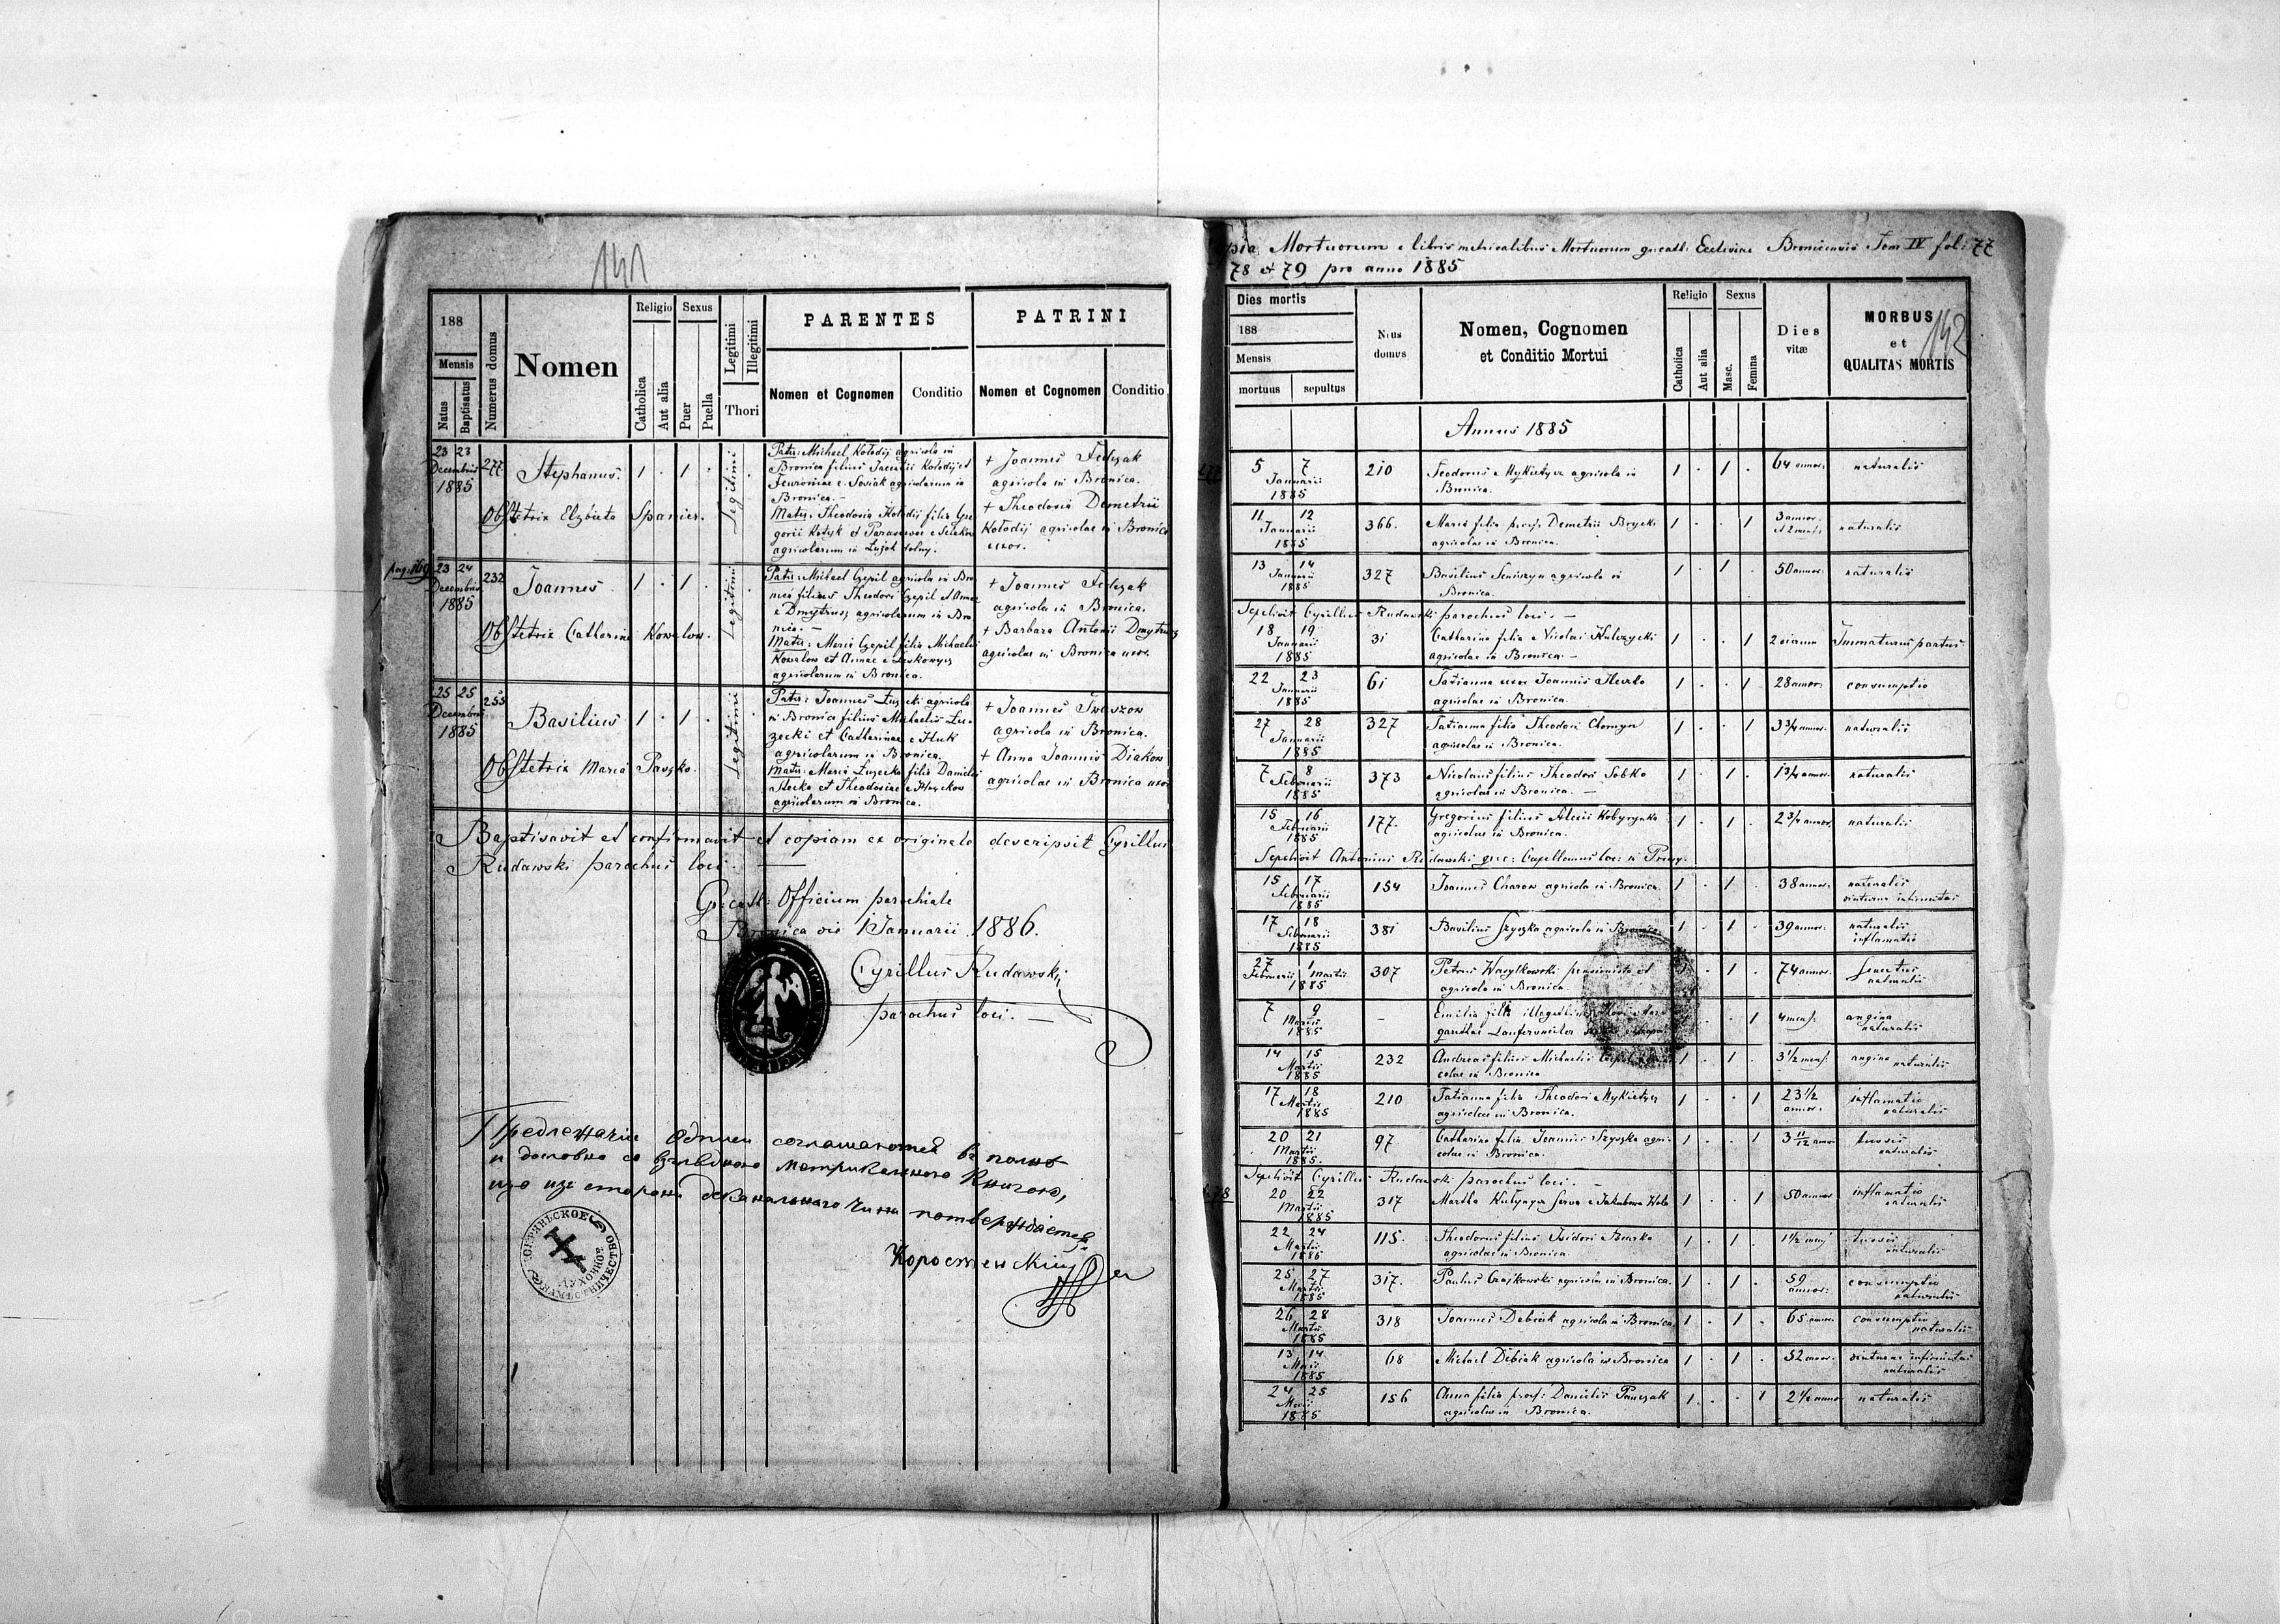 141
188
Mensis
Natus
Baptisatus
Numerus domus
Nomen
Religio
Catholica
Aut alia
Sexus
Puer
Puella
Legitimi
Illegitimi
Thori
PARENTES
Nomen et Cognomen
Conditio
PATRINI
Nomen et Cognomen
Conditio
23 23
Decembris
1885
277
Stephanus.
1 . 1 .
Legitimi
Obstetrix Elzbieta Spanier.
Pater: Michael Kołodij agricola in
Bronica filius
agricolarum in
Bronica. –
Mater: Theodosia Kołodij filia Gre-
gorii
agricolarum in
+ Joannes Fedczak
agricola in Bronica.
+ Theodosia Demetrii
Kołodij agricolae in Bronica
uxor.
pag. 169
23 24
Decembris
1885
232
Joannes
1 . 1 .
Legitimi
Obstetrix Catharina Kowalow.
Pater: Michael Czepil agricola in Bro-
nica filius Theodori Czepil et Annae
e Dmytrusz agricolarum in Bro-
nica. –
Mater: Maria Czepil filia Michaelis
Kowalow et Annae e
agricolarum in Bronica.
+ Joannes Fedczak
agricola in Bronica.
+ Barbara Antonii Dmytrusz
agricolae in Bronica uxor.
25 25
Decembris
1885
255
Basilius
1 . 1 .
Legitimi
Obstetrix Maria Paszko.
Pater: Joannes Łuzecki agricola
in Bronica filius Michaelis Łu-
zecki et Catharinae e Huk
agricolarum in Bronica.
Mater: Maria Łuzecka filia Danielis
Stecko et Theodosiae e
agricolarum in Bronica.
+ Joannes Iwaszow
agricola in Bronica.
+ Anna Joannis Diakow
agricolae in Bronica uxor
Baptisavit et confirmavit et copiam ex originale descripsit Cyrillus
Rudawski parochus loci. –
Gr: cath: Officium parochiale
Bronica die 1 Januarii 1886.
Cyrillus Rudawski
parochus loci. –
Предлежащiи
соглашаются въ полнѣ
и дословно со взглядною Метрикальною Книгою,
що изъ стороны деканального чина потверждается
ДУХОВНОЕ
НАМѢСТНИЧЕСТВО
Copia Mortuorum e libris metricalibus Mortuorum gr: cath. Ecclesiae Bronicensis Tom IV fol: 77
78 et 79 pro anno 1885
142
Dies mortis
188
Mensis
mortuus
sepultus
Nrus
domus
Nomen, Cognomen
et Conditio Mortui
Religio
Catholica
Aut alia
Sexus
Masc.
Femina
Dies
vitæ
MORBUS
et
QUALITAS MORTIS
Annus 1885
5 7 Januarii 1885 210 Teodorus Mykietycz agricola in Bronica. 1 . 1 . 64 annor. naturalis
11 12 Januarii 1885 366. Maria filia Demetrii Brycki agricolae in Bronica. 1 . . 1 3 annor. et 2 mens. naturalis
13 14 Januarii 1885 327 Basilius agricola in Bronica. 1 . 1 . 50 annor. naturalis
Sepelivit Cyrillus Rudawski parochus loci. –
18 19 Januarii 1885 31 Catharina filia Nicolai Hulczycki agricolae in Bronica. – 1 . . 1 Immaturus partus
22 23 Januarii 1885 61 Tatianna uxor Joannis agricolae in Bronica. 1 . . 1 28 annor. consumptio
27 28 Januarii 1885 327 Tatianna filia Theodori Chomyn agricolae in Bronica. 1 . . 1 3 3/4 annor. naturalis
7 8 Februarii 1885 373 Nicolaus filius Theodori Sobko agricolae in Bronica. – 1 . 1 . 1 3/4 annor. naturalis
15 16 Februarii 1885 177. Gregorius filius Alexii Kobyrynka agricolae in Bronica. 1 . 1 . 2 3/4 annor. naturalis
Sepelivit Antonius Rudawski
15 17 Februarii 1885 154 Joannes Charow agricola in Bronica 1 . 1 . 38 annor. naturalis
17 18 Februarii 1885 381 Basilius Szyszka agricola in Bronica 1 . 1 . 39 annor. naturalis inflamatio
27 Februarii 1 Martii 1885 307 Petrus Wasylkowski pensionista et agricola in Bronica. . 1 . 74 annor. senectus naturalis
7 9 Martii 1885 – Emilia . . 1 4 mens. angina naturalis
14 15 Martii 1885 232 Andreas filius Michaelis Czepil agricolae in Bronica 1 . 1 . 3 1/2 mens. angina naturalis
17 18 Martii 1885 210 Tatianna filia Theodori Mykietycz agricolae in Bronica. 1 . . 1 23 1/2 annor. inflamatio naturalis
20 21 Martii 1885. 97 Catharina filia Joannis Szyszka agricolae in Bronica. 1 . . 1 3 11/12 annor. tussis naturalis
Sepelivit Cyrillus Rudawski parochus loci. –
20 22 Martii 1885 317 Martha 1 . . 1 50 annor. inflamatio naturalis
22 24 Martii 1885 115. Theodorus filius Isidori agricolae in Bronica. 1 . 1 . 1 1/2 mens. tussis naturalis
25 27 Martii 1885 317. Paulus Czajkowski agricola in Bronica. 1 . 1 . 59 annor: consumptio naturalis
26 28 Martii 1885 318 Joannes Debiak agricola in Bronica 1 . 1 . 65 annor. consumptio naturalis
13 14 Maii 1885 68 Michael Debiak agricola in Bronica 1 . 1 . 52 annor. naturalis
24 25 Maii 1885 156 Anna filia Danielis Panczak agricolae in Bronica. 1 . . 1 2 1/2 annor naturalis